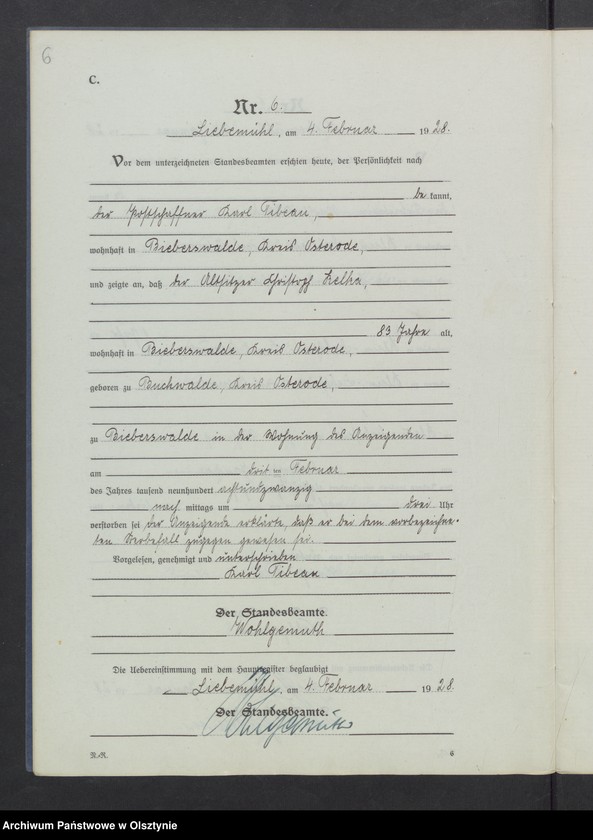 6
C.
Nr. 6.
Liebemühl, am 4. Februar 1928.
Vor dem unterzeichneten Standesbeamten erschien heute, der Persönlichkeit nach
be kannt,
der Postschaffner Karl Tibeau,
wohnhaft in Bieberswalde, Kreis Osterode,
und zeigte an, daß der Altsitzer Christoph Kelka,
83 Jahre alt,
wohnhaft in Bieberswalde, Kreis Osterode,
geboren zu Buchwalde, Kreis Osterode,
zu Bieberswalde in der Wohnung des Anzeigenden
am drit ten Februar
des Jahres tausend neunhundert achtundzwanzig
nach mittags um drei Uhr
verstorben sei der Anzeigende erklärte, daß er bei dem vorbezeichne-
ten Sterbefall zugegen gewesen sei.
Vorgelesen, genehmigt und unterschrieben
Karl Tibeau
Der Standesbeamte.
Wohlgemuth
Die Uebereinstimmung mit dem Hauptregister beglaubigt
Liebemühl, am 4. Februar 1928.
Der Standesbeamte.
Wohlgemuth
R.-R.
6
Archiwum Państwowe w Olsztynie